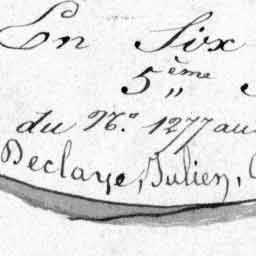 En Six
5ème
du No. 1277 au
Declaye, Julien,